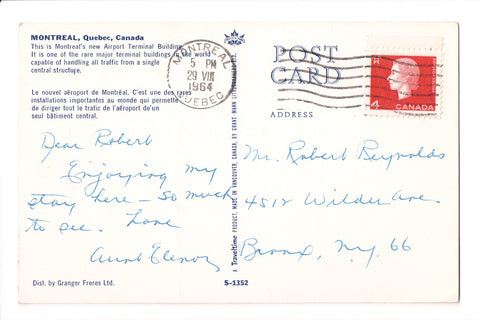 MONTREAL, Quebec, Canada
This is Montreal's new Airport Terminal Building.
It is one of the rare major terminal buildings in the world
capable of handling all traffic from a single
central structure.
Le nouvel aéroport de Montréal. C'est une des rares
installations importantes au monde qui permette
de diriger tout le trafic de l'aéroport de'un
seul bâtiment central.
MONTREAL
5 PM
29 VIII
1964
QUEBEC
POST
CARD
ADDRESS
4
CANADA
Dear Robert
Enjoying my
stay here - so much
to see. Love
Aunt Elenor
Mr. Robert Reynolds
4512 Wilder Ave.
Bronx, N.y. 66
A Traveltime PRODUCT, MADE IN VANCOUVER, CANADA, BY GRANT-MANN
Dist. by Granger Freres Ltd.
S-1352